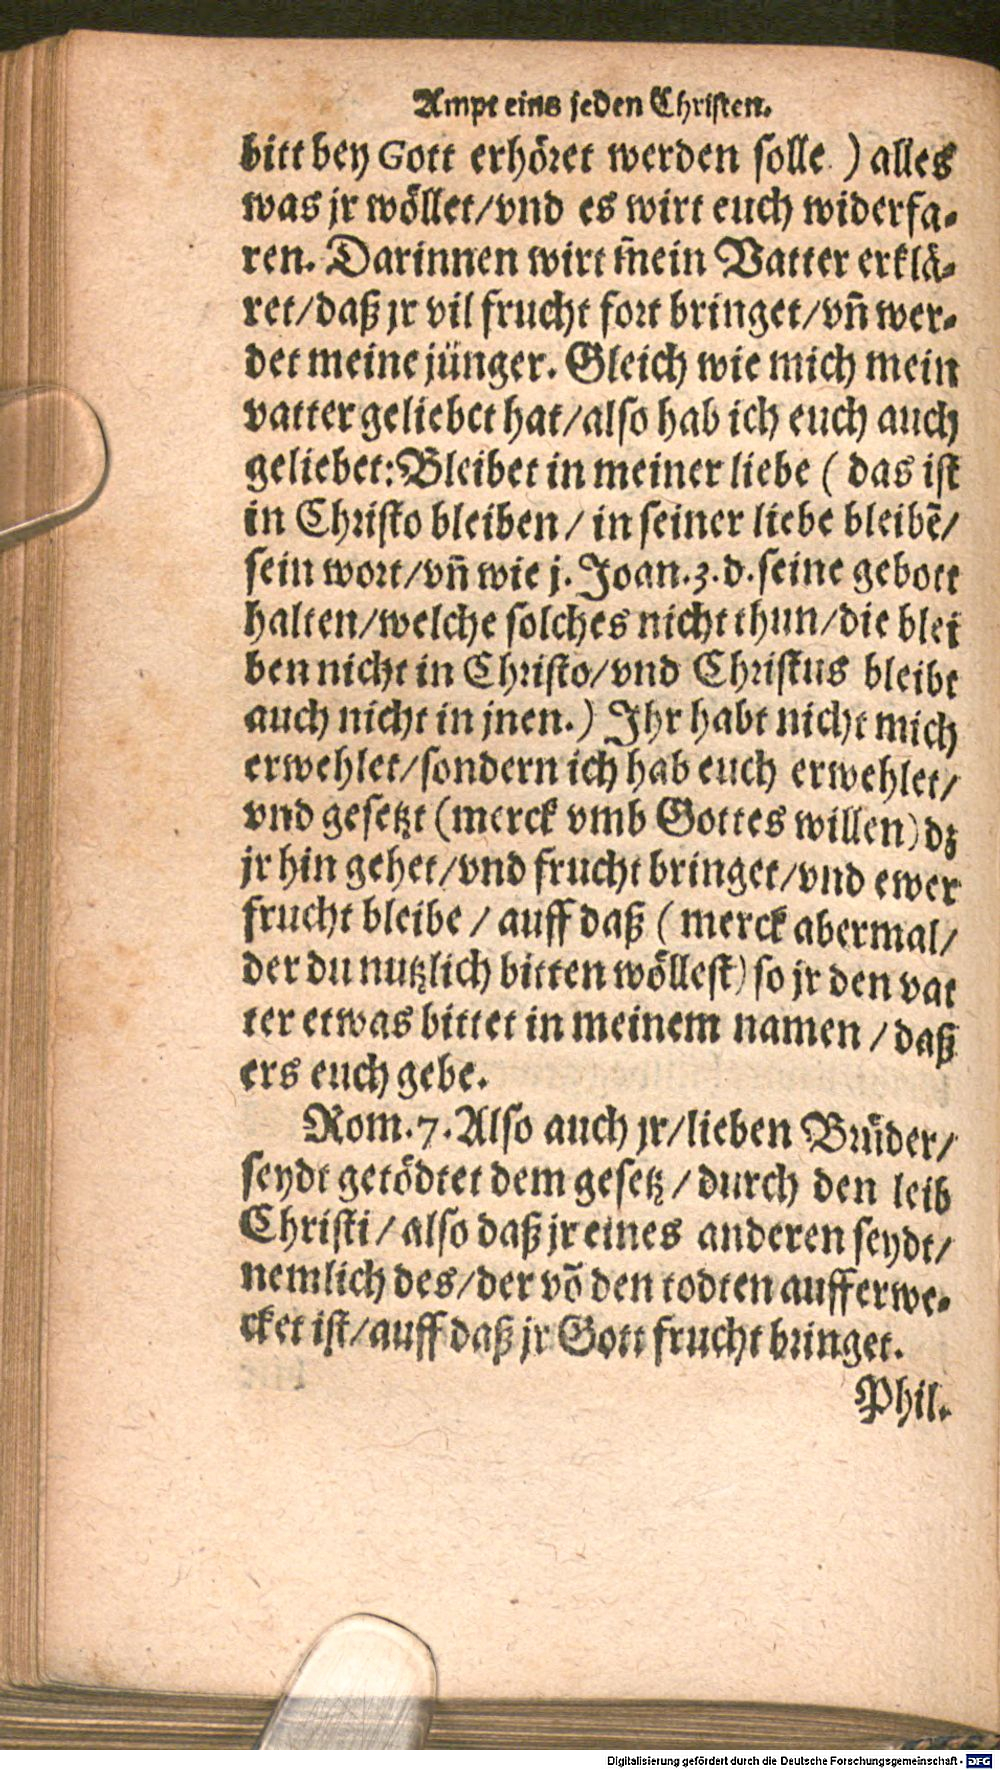 Ampt eins jeden Christen.
bitt bey Gott erhöret werden solle.) alles
was jr wöllet/vnd es wirt euch widerfa-
ren. Darinnen wirt m̃ein Vatter erklä-
ret/daß jr vil frucht fort bringet/vñ wer-
det meine jünger. Gleich wie mich mein
vatter geliebet hat/also hab ich euch auch
geliebet: Bleibet in meiner liebe ( das ist
in Christo bleiben / in seiner liebe bleibẽ/
sein wort/vñ wie j. Joan.3.d. seine gebott
halten/welche solches nicht thun/die blei
ben nicht in Christo/vnd Christus bleibt
auch nicht in jnen.) Ihr habt nicht mich
erwehlet/sondern ich hab euch erwehlet/
vnd gesetzt (merck vmb Gottes willen) dz
jr hin gehet/vnd frucht bringet/vnd ewer
frucht bleibe / auff daß ( merck abermal/
der du nutzlich bitten wöllest) so jr den vat
ter etwas bittet in meinem namen / daß
ers euch gebe.
Rom.7. Also auch jr/lieben Brüder/
seydt getödtet dem gesetz / durch den leib
Christi / also daß jr eines anderen seydt/
nemlich des/der võ den todten aufferwe-
cket ist/auff daß jr Gott frucht bringet.
Phil.
Digitalisierung gefördert durch die Deutsche Forschungsgemeinschaft - DFG